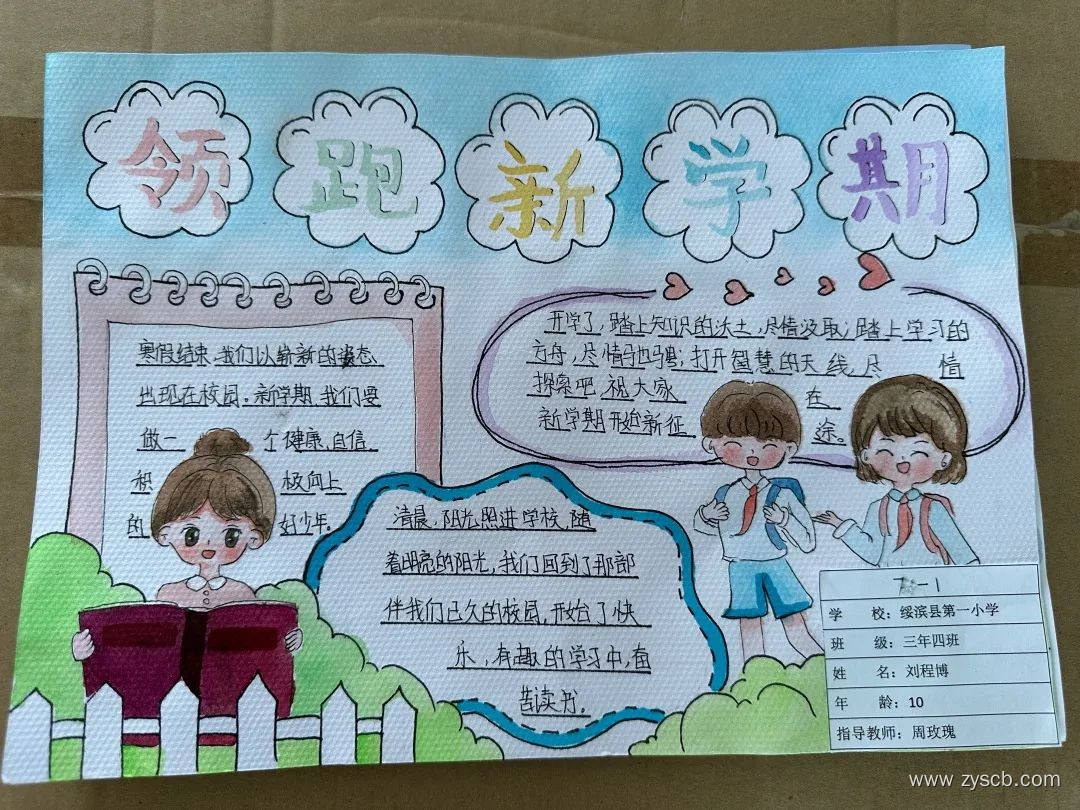 领跑新学期
寒假结束,我们以崭新的姿态
出现在校园。新学期,我们要
做一个健康,自信
积极向上
的好少年。
开学了,踏上知识的沃土,尽情汲取;踏上学习的
方舟,尽情驰骋;打开智慧的天线,尽情
探索吧,祝大家在
新学期开始新征途。
清晨,阳光照进学校,随
着明亮的阳光,我们回到了那部
伴我们已久的校园,开始了快
乐,有趣的学习中,有
苦读书。
学 校：绥滨县第一小学
班 级：三年四班
姓 名：刘程博
年 龄：10
指导教师：周玫瑰
www.zyscb.com